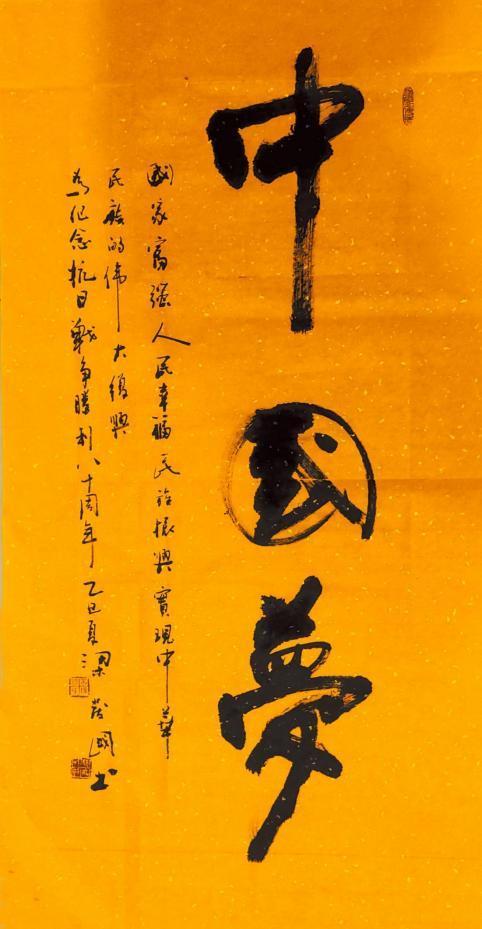 中國夢
國家富强人民幸福民族振興實現中華
民族的偉大復興
為纪念抗日戰争勝利八十周年乙巳夏梁
國书